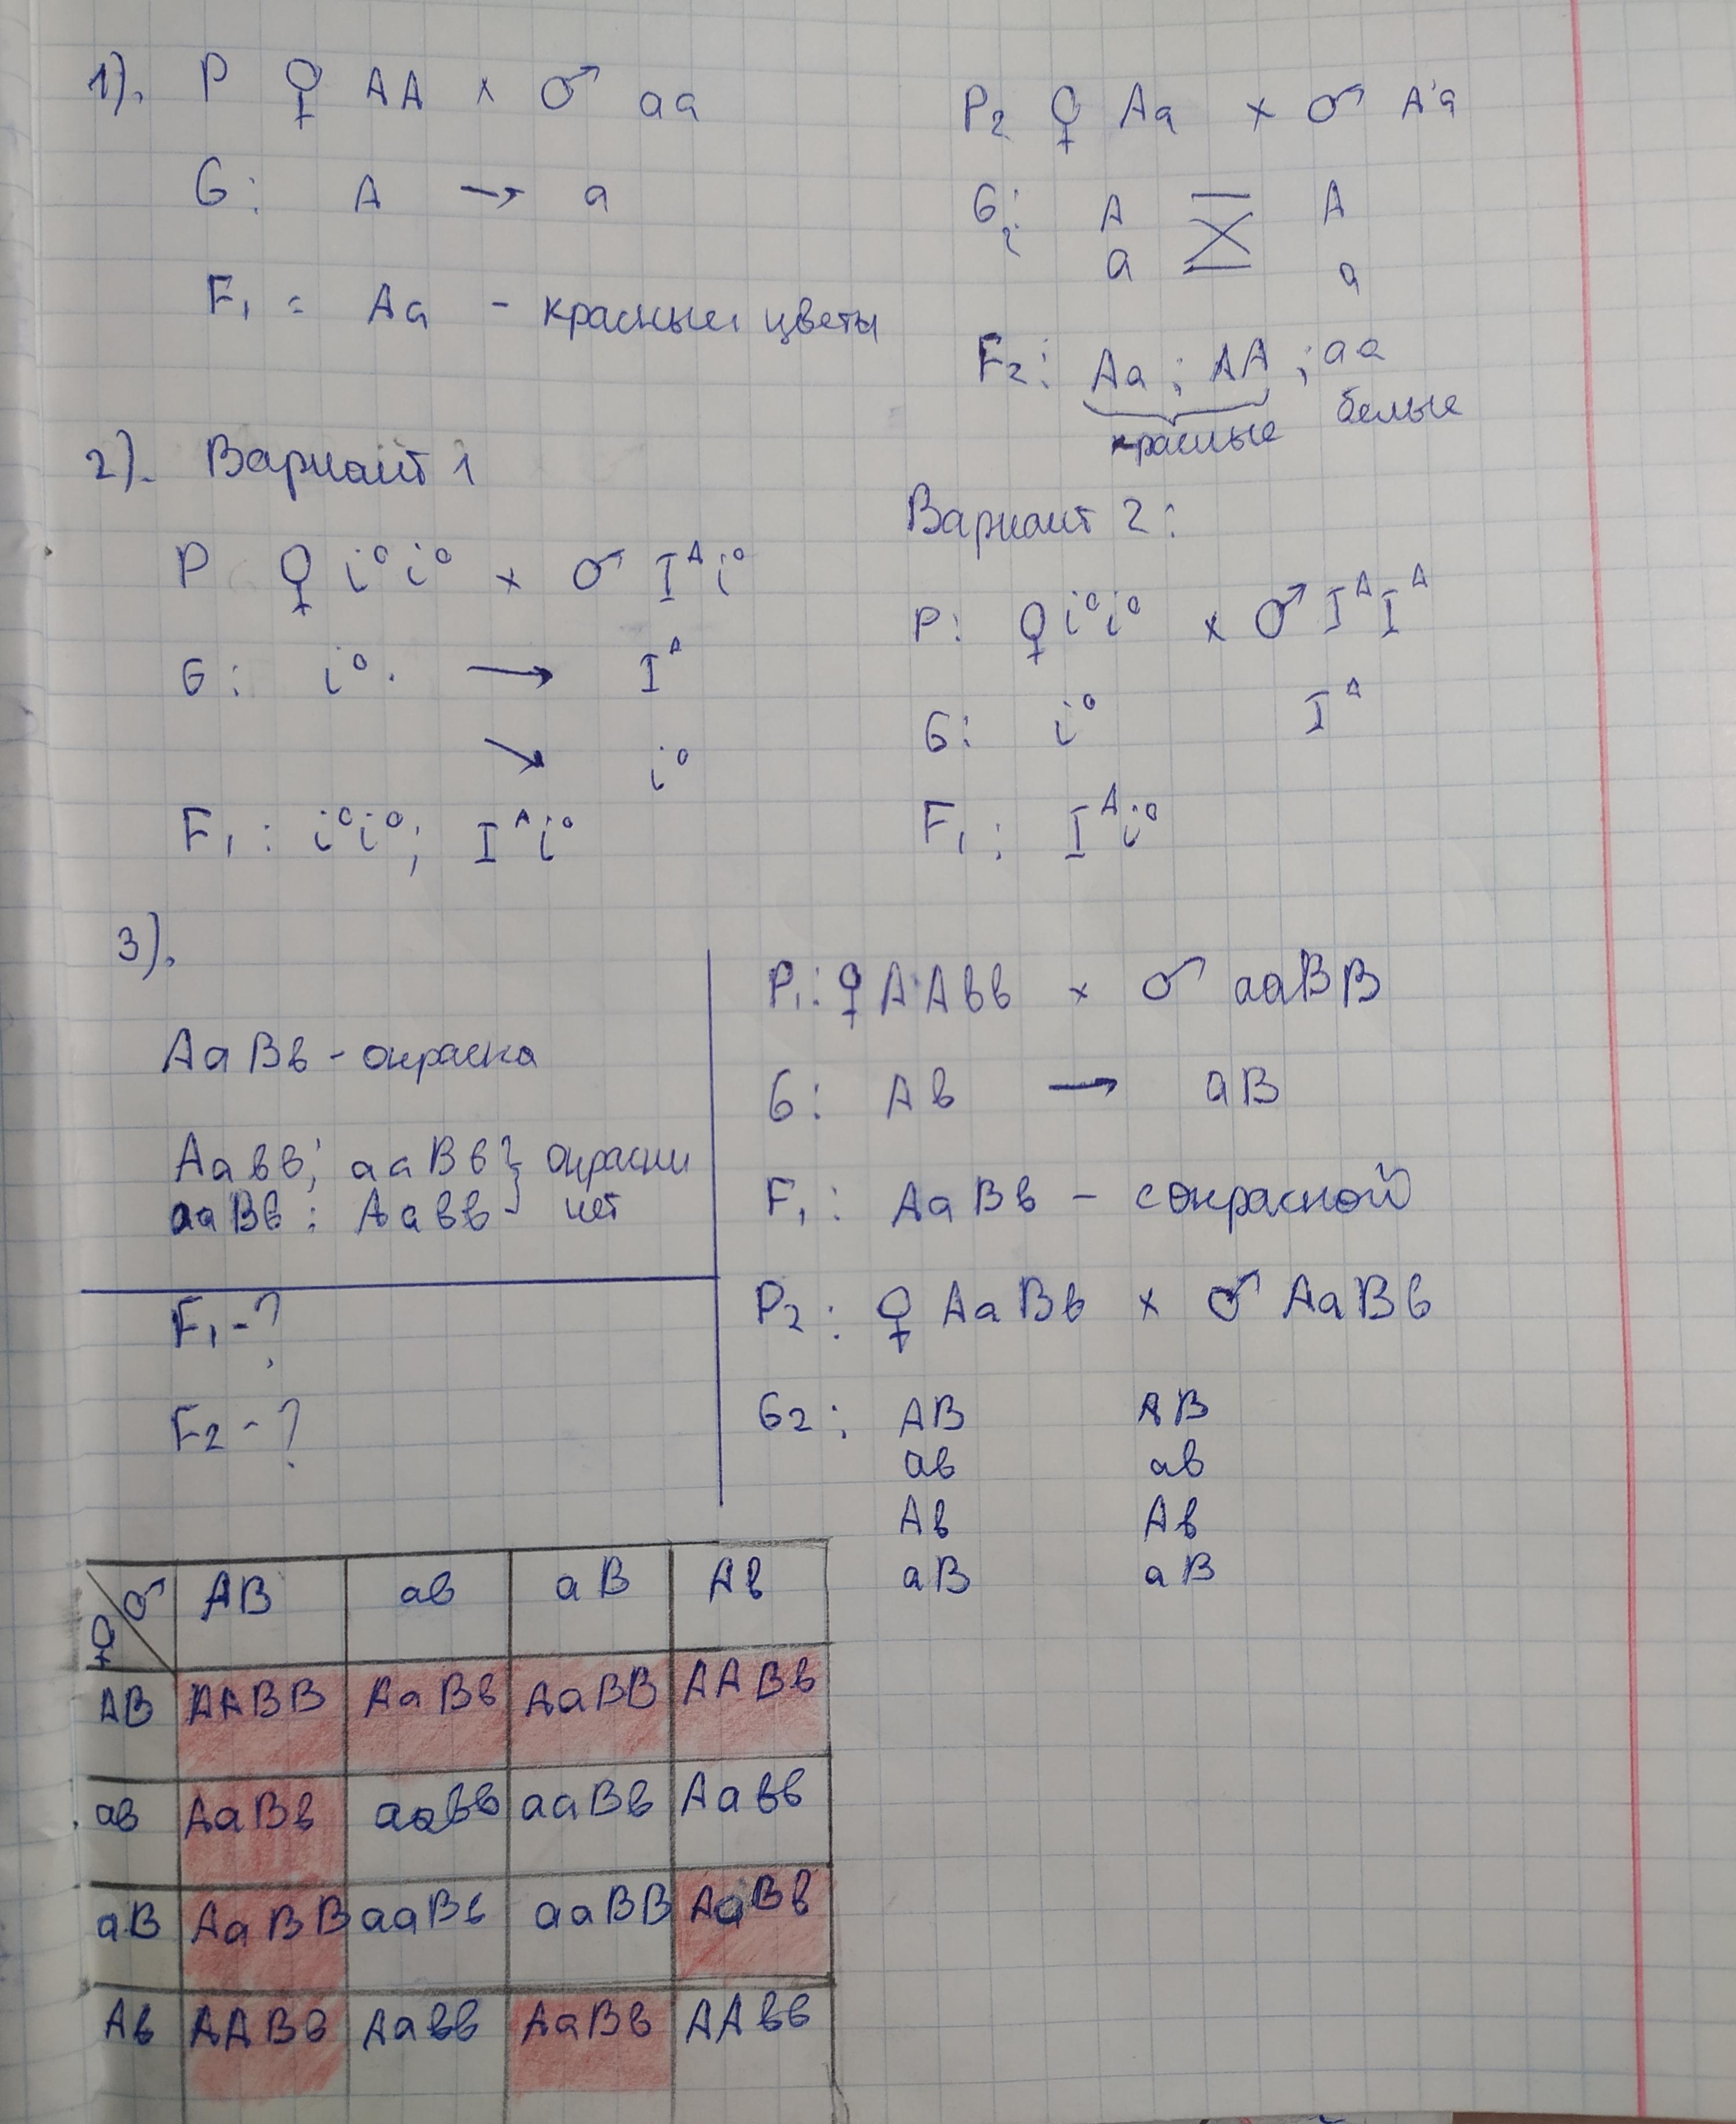 1). P ♀ AA × ♂ aa
G: A → a
F₁ = Aa - красные цветы
P₂ ♀ Aa × ♂ Aa
G₂: A A
a a
F₂: Aa ; AA ; aa
красные белые
2). Вариант 1
P ♀ i⁰i⁰ × ♂ Iᴬi⁰
G: i⁰. → Iᴬ
↘ i⁰
F₁: i⁰i⁰; Iᴬi⁰
Вариант 2:
P: ♀ i⁰i⁰ × ♂ IᴬIᴬ
G: i⁰ Iᴬ
F₁: Iᴬi⁰
3).
AaBв - окраска
Aaвв; aaBв } окраски
aaBв; Aaвв } нет
F₁ - ?
F₂ - ?
P₁: ♀ AAвв × ♂ aaBB
G: Aв → aB
F₁: AaBв – с окраской
P₂: ♀ AaBв × ♂ AaBв
G₂: AB AB
aв aв
Aв Aв
aB aB
♀ ♂ AB aв aB Aв
AB AABB AaBв AaBB AABв
aв AaBв aaвв aaBв Aaвв
aB AaBB aaBв aaBB AaBв
Aв AABв Aaвв AaBв AAвв